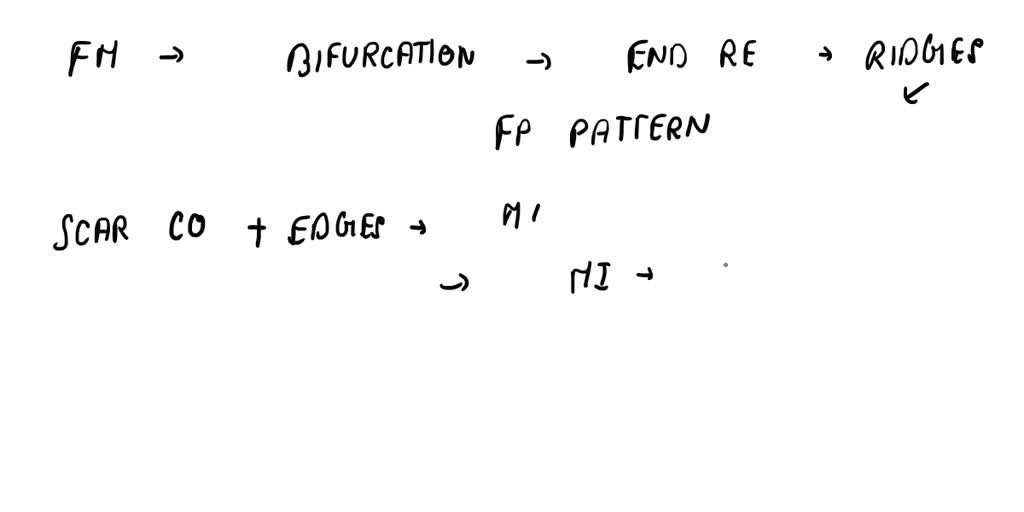 FM → BIFURCATION → END RE → RIDGES
↙
FP PATTERN
SCAR CO + EDGES → MI
→ MI →